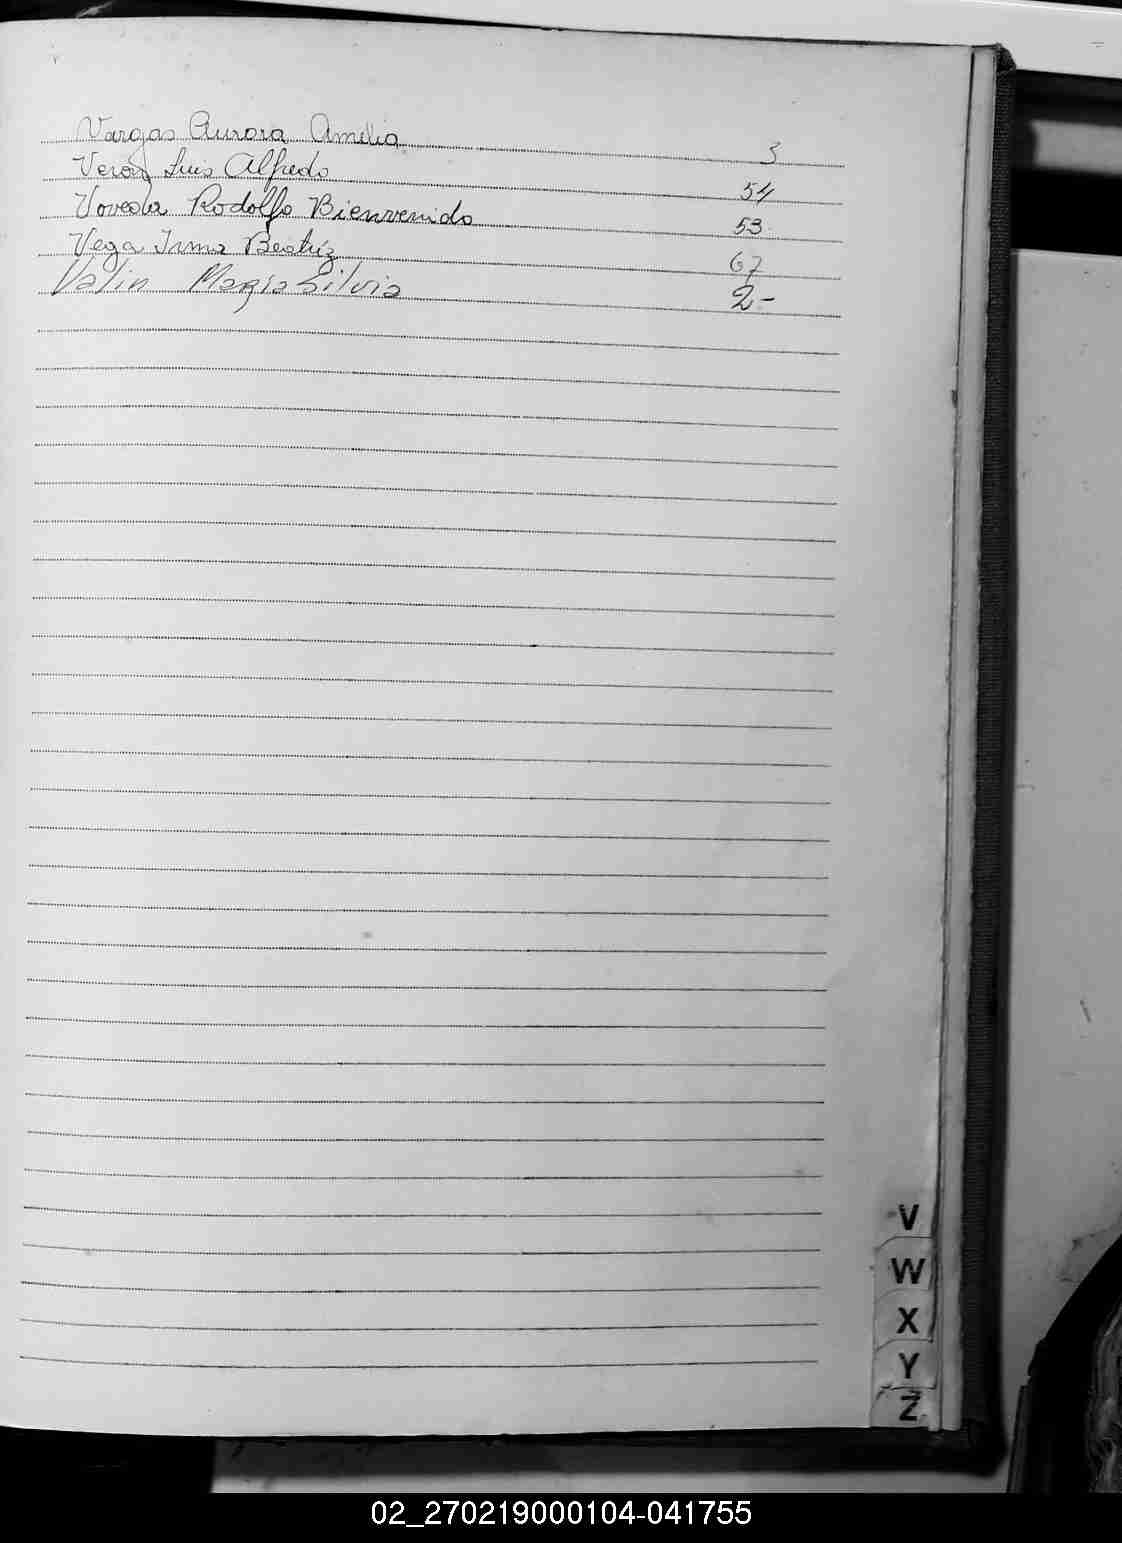 Vargas Aurora Amelia 3
Veron Luis Alfredo 54
Rodolfo Bienvenido 53
Vega Irma Beatriz 67
Valin Maria Silvia 2-
V
W
X
Y
Z
02_270219000104-041755